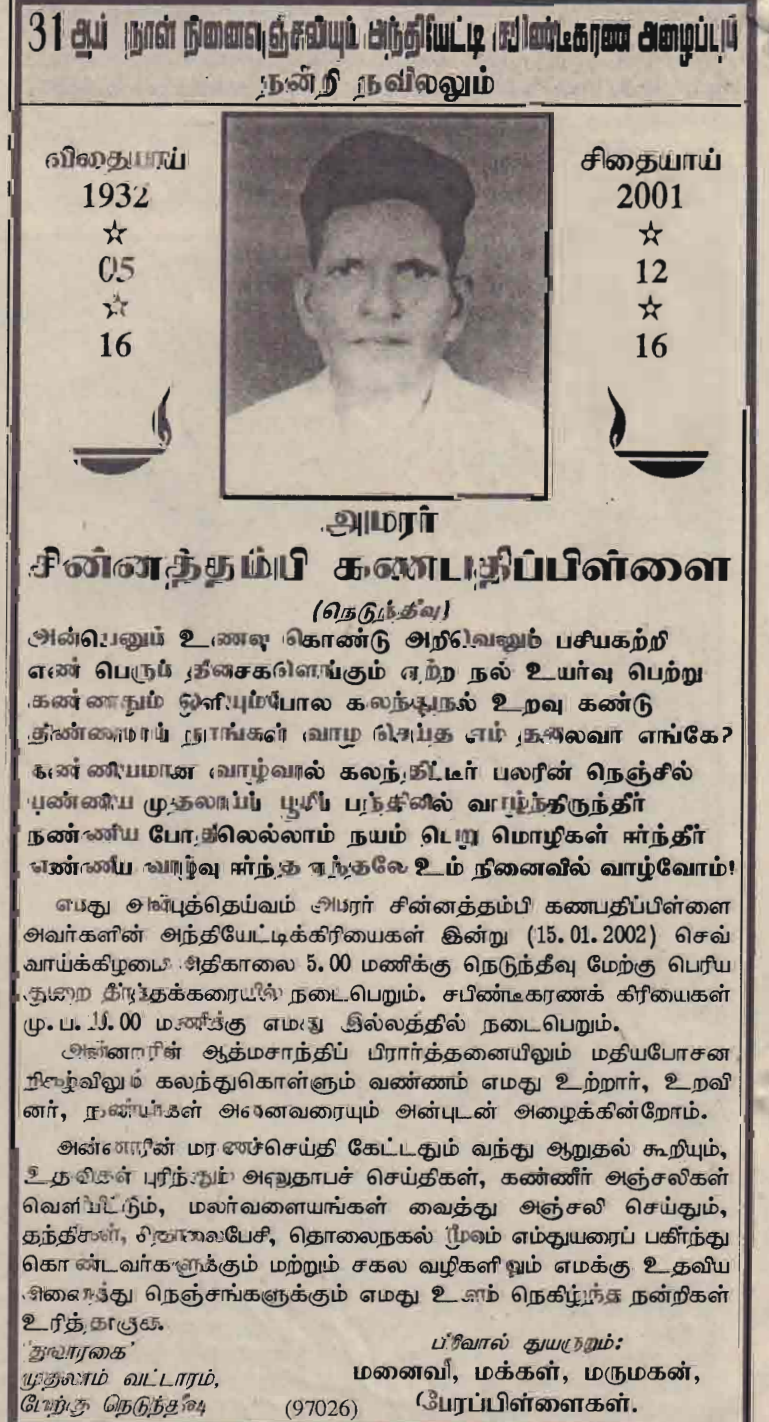 31 ஆம் நாள் நினைவஞ்சலியும் அந்தியேட்டி சபிண்டீகரண அழைப்பும்
நன்றி நவிலலும்
விதையாய்
1932
☆
05
☆
16
சிதையாய்
2001
☆
12
☆
16
அமரர்
சின்னத்தம்பி கணபதிப்பிள்ளை
(நெடுந்தீவு)
அன்பெனும் உணவு கொண்டு அறிவெனும் பசியகற்றி
எண் பெரும் திசைகளெங்கும் ஏற்ற நல் உயர்வு பெற்று
கண்ணதும் ஒளியும்போல கலந்துநல் உறவு கண்டு
திண்ணமாய் நாங்கள் வாழ செய்த எம் தலைவா எங்கே?
கண்ணியமான வாழ்வால் கலந்திட்டீர் பலரின் நெஞ்சில்
புண்ணிய முதலாய்ப் பூமிப் பந்தினில் வாழ்ந்திருந்தீர்
நண்ணிய போதிலெல்லாம் நயம் பெறு மொழிகள் ஈர்ந்தீர்
எண்ணிய வாழ்வு ஈர்ந்த ஏந்தலே உம் நினைவில் வாழ்வோம்!
எமது அன்புத்தெய்வம் அமரர் சின்னத்தம்பி கணபதிப்பிள்ளை
அவர்களின் அந்தியேட்டிக்கிரியைகள் இன்று (15.01.2002) செவ்
வாய்க்கிழமை அதிகாலை 5.00 மணிக்கு நெடுந்தீவு மேற்கு பெரிய
துறை தீர்த்தக்கரையில் நடைபெறும். சபிண்டீகரணக் கிரியைகள்
மு.ப. .00 மணிக்கு எமது இல்லத்தில் நடைபெறும்.
அன்னாரின் ஆத்மசாந்திப் பிரார்த்தனையிலும் மதியபோசன
நிகழ்விலும் கலந்துகொள்ளும் வண்ணம் எமது உற்றார், உறவி
னர், நண்பர்கள் அனைவரையும் அன்புடன் அழைக்கின்றோம்.
அன்னாரின் மரணச்செய்தி கேட்டதும் வந்து ஆறுதல் கூறியும்,
உதவிகள் புரிந்தும் அனுதாபச் செய்திகள், கண்ணீர் அஞ்சலிகள்
வெளியிட்டும், மலர்வளையங்கள் வைத்து அஞ்சலி செய்தும்,
தந்திகள், தொலைபேசி, தொலைநகல் மூலம் எம்துயரைப் பகிர்ந்து
கொண்டவர்களுக்கும் மற்றும் சகல வழிகளிலும் எமக்கு உதவிய
அனைத்து நெஞ்சங்களுக்கும் எமது உளம் நெகிழ்ந்த நன்றிகள்
உரித்தாகுக.
'துவாரகை'
முதலாம் வட்டாரம்,
மேற்கு நெடுந்தீவு
(97026)
பிரிவால் துயருறும்:
மனைவி, மக்கள், மருமகன்,
பேரப்பிள்ளைகள்.